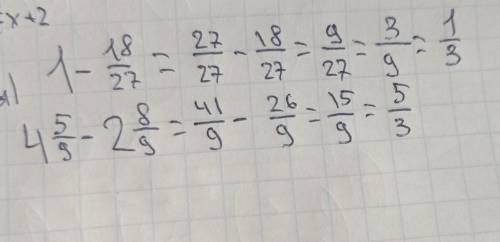 =x+2
1 - 18/27 = 27/27 - 18/27 = 9/27 = 3/9 = 1/3
4 5/9 - 2 8/9 = 41/9 - 26/9 = 15/9 = 5/3